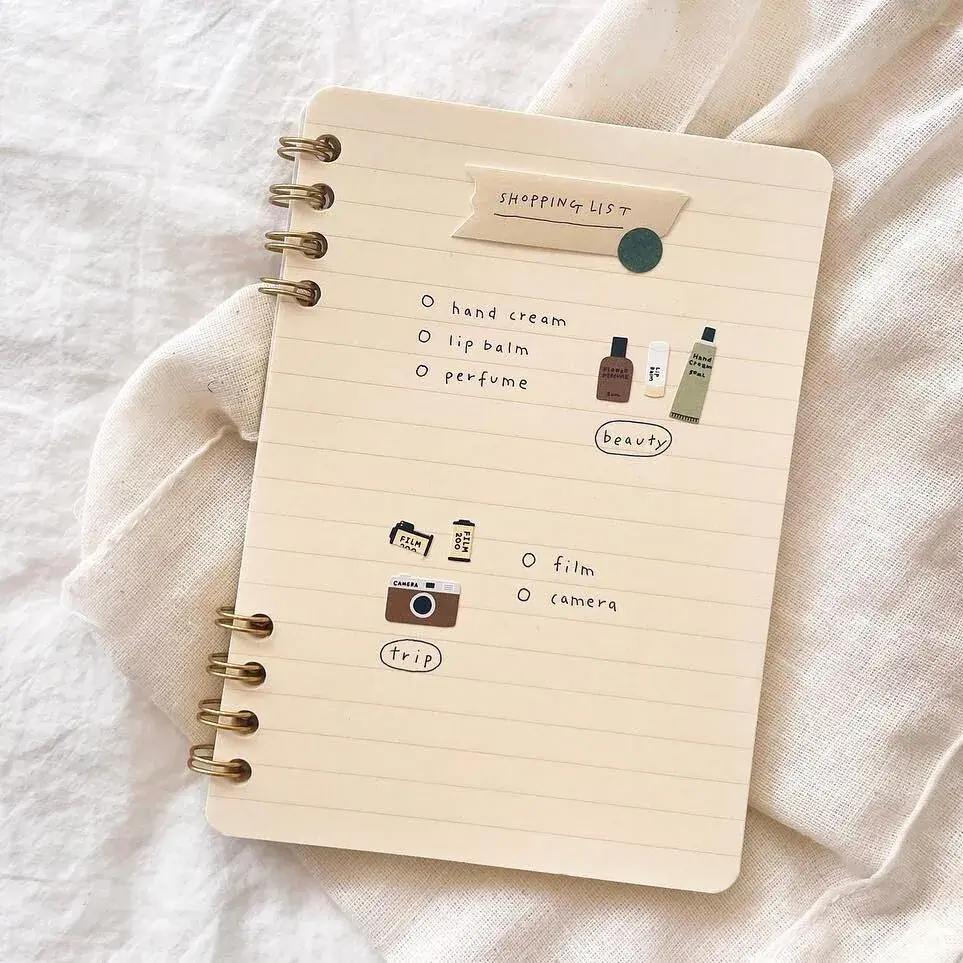 SHOPPING LIST
hand cream
lip balm
perfume
FLOWER
PERFUME
LIP
BALM
Hand
Cream
50mL
beauty
FILM
200
FILM
200
CAMERA
film
camera
trip